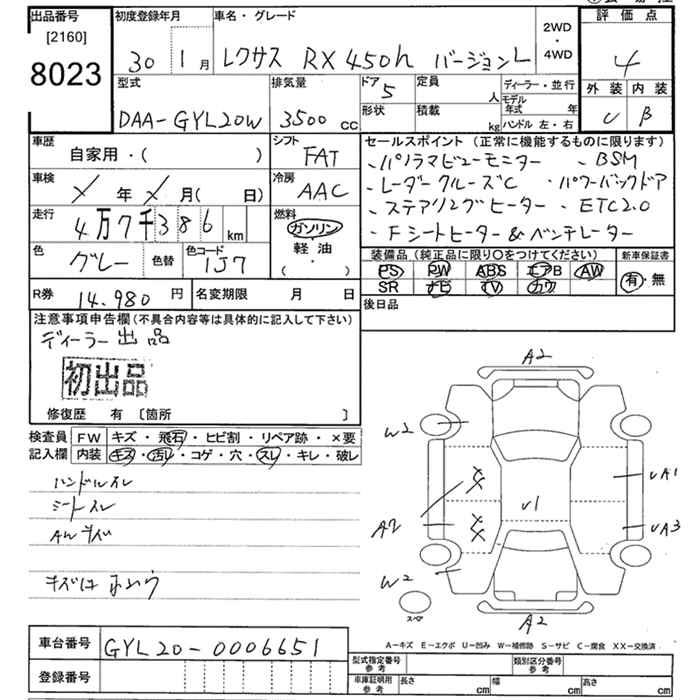 出品番号 初度登録年月 車名・グレード 評価点
[2160]
8023
30 1月 レクサス RX 450h バージョンL 2WD・4WD 4
型式 排気量 ドア 5 定員 人 ディーラー・並行 外装 内装
DAA-GYL20W 3500 cc 形状 積載 kg モデル年式 年 ハンドル 左・右 C B
車歴 自家用・( ) シフト FAT
セールスポイント (正常に機能するものに限ります)
・パノラマビューモニター ・BSM
・レーダークルーズC ・パワーバックドア
・ステアリングヒーター ・ETC2.0
・Fシートヒーター&ベンチレーター
車検 × 年 × 月( 日) 冷房 AAC
走行 4万7千386 km 燃料 ガソリン・軽油・( )
色 グレー 色替 色コード 1J7
装備品 (純正品に限り○をつけてください) 新車保証書
PS PW ABS エアB AW
SR ナビ TV カワ
有・無
R券 14,980 円 名変期限 月 日
後日品
注意事項申告欄 (不具合内容等は具体的に記入して下さい)
ディーラー出品
初出品
修復歴 有 〔箇所 〕
検査員記入欄 FW キズ・飛石・ヒビ割・リペア跡・×要
内装 キズ・汚レ・コゲ・穴・スレ・キレ・破レ
ハンドルスレ
シートスレ
AWキズ
A2
W2
UA1
U1
A2
UA3
W2
スペア
A2
A−キズ E−エクボ U−凹み W−補修跡 S−サビ C−腐食 XX−交換済
車台番号 GYL20-0006651
登録番号
型式指定番号 参考 類別区分番号 参考
車庫証明用 参考 長さ cm 幅 cm 高さ cm